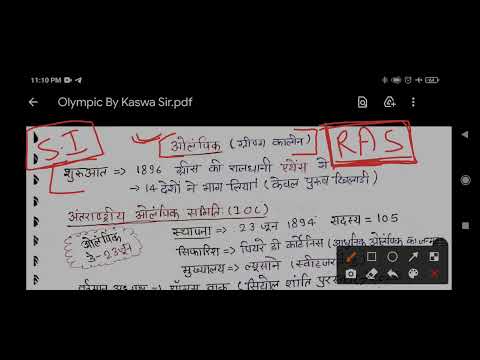 11:10 PM
64
Olympic By Kaswa Sir.pdf
S.I
ओलंपिक (ग्रीष्म कालीन)
RAS
शुरुआत => 1896 ग्रीस की राजधानी एथेंस में
→ 14 देशों ने भाग लिया। (केवल पुरुष खिलाड़ी)
अंतराष्ट्रीय ओलंपिक समिति (IOC)
स्थापना => 23 जून 1894 सदस्य = 105
ओलंपिक
डे-23 जून
सिफारिश => पियरे दी कोर्टेनिस (आधुनिक ओलंपिक का जन्म
मुख्यालय => ल्यूसाने (स्वीट्जर
थॉमस बाक (सियोल शांति पुरस्